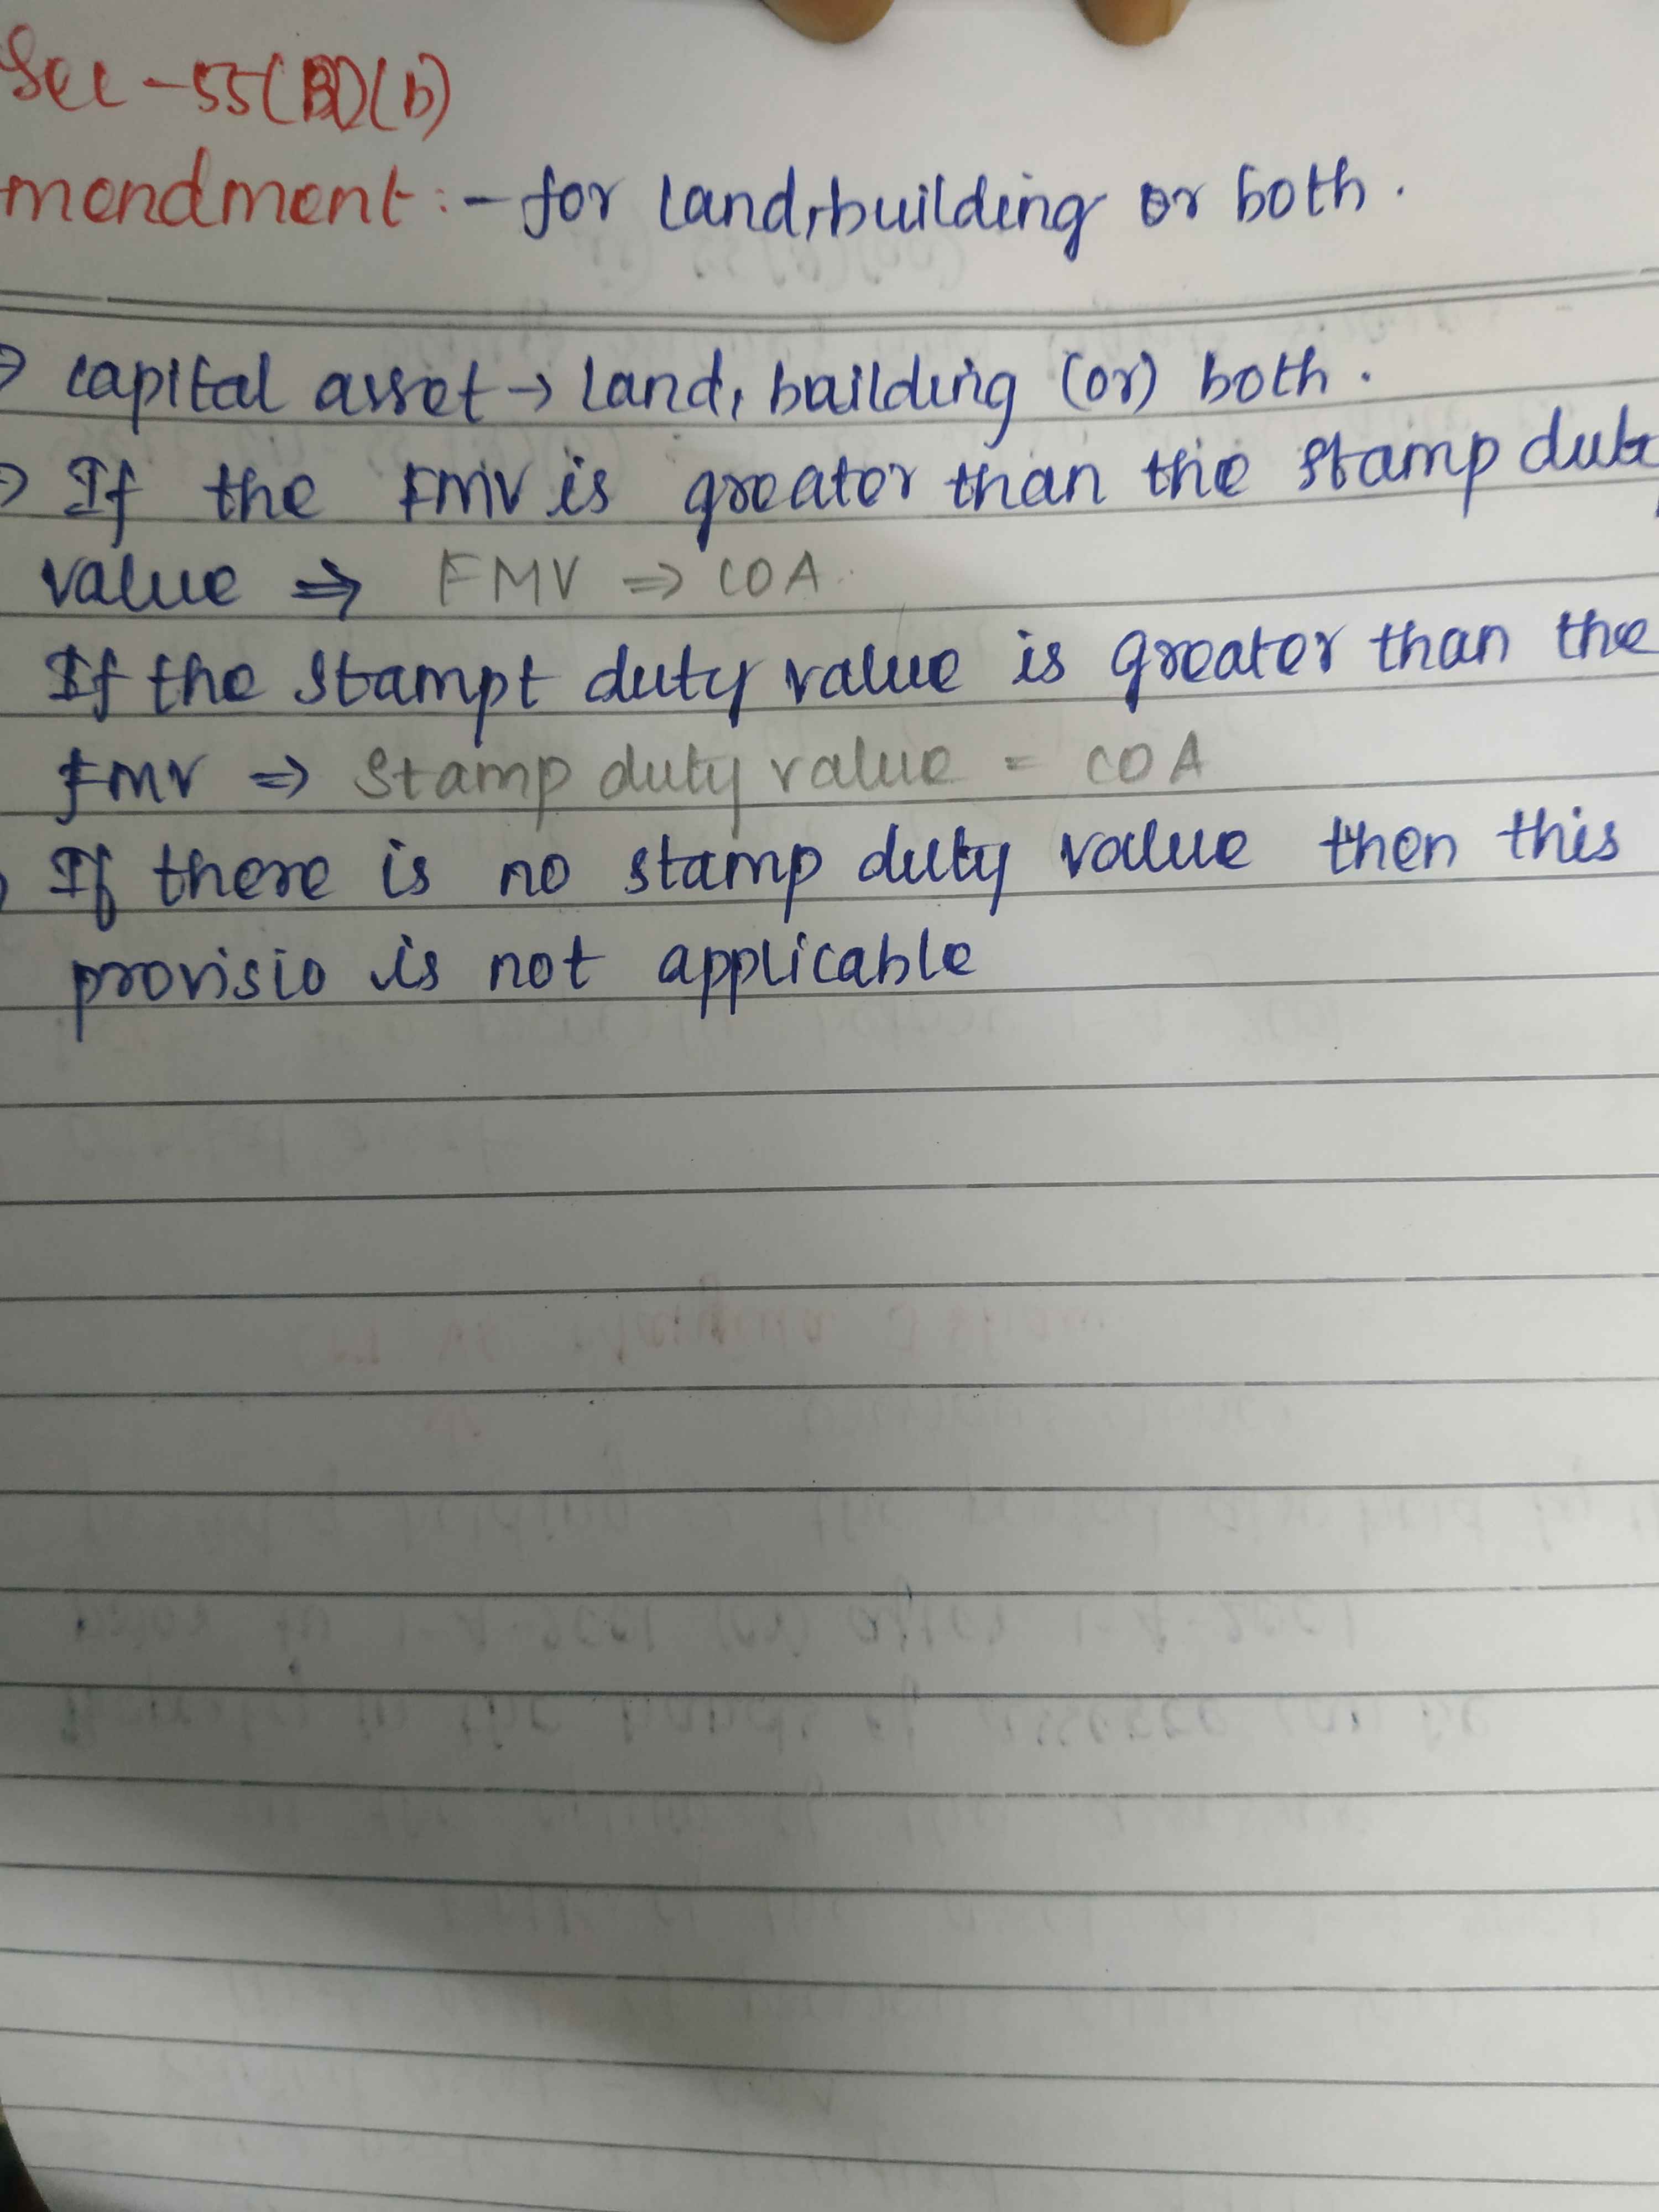 Sec - 55(B)(b)
mendment: - for land, building or both.
⇒ capital asset → land, building (or) both.
⇒ If the FMV is greater than the stamp duty
value ⇒ FMV ⇒ COA
If the stampt duty value is greater than the
FMV ⇒ stamp duty value = COA
If there is no stamp duty value then this
provisio is not applicable